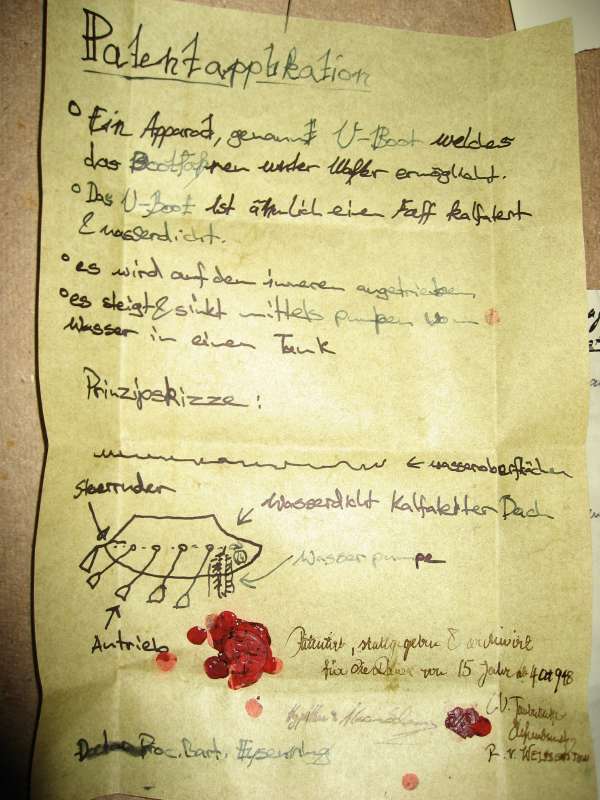 Patentapplikation
Ein Apparat, genannt U-Boot welches
das Bootfahren unter Waßer ermöglicht.
Das U-Boot ist ähnlich einen Faß kalfatert
& wasserdicht.
es wird auf dem inneren angetrieben
es steigt & sinkt mittels pumpen vom
Wasser in einen Tank
Prinzipskizze:
wasseroberflächen
steerruder
Wasserdicht Kalfateter Dach
Wasserpumpe
Antrieb
Patentirt, stattgegeben & archiviert
für die Dauer von 15 Jahr ab 4 Oct 948
Proc. Bart. Eysenring